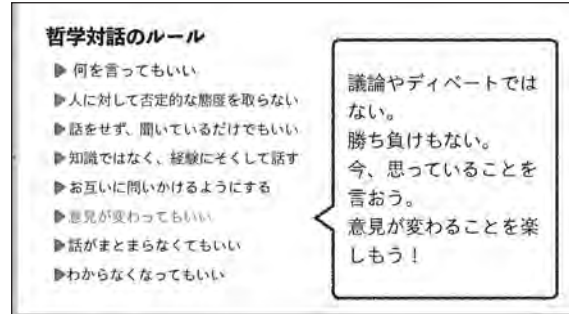 哲学対話のルール
▶何を言ってもいい
▶人に対して否定的な態度を取らない
▶話をせず、聞いているだけでもいい
▶知識ではなく、経験にそくして話す
▶お互いに問いかけるようにする
▶意見が変わってもいい
▶話がまとまらなくてもいい
▶わからなくなってもいい
議論やディベートでは
ない。
勝ち負けもない。
今、思っていることを
言おう。
意見が変わることを楽
しもう！